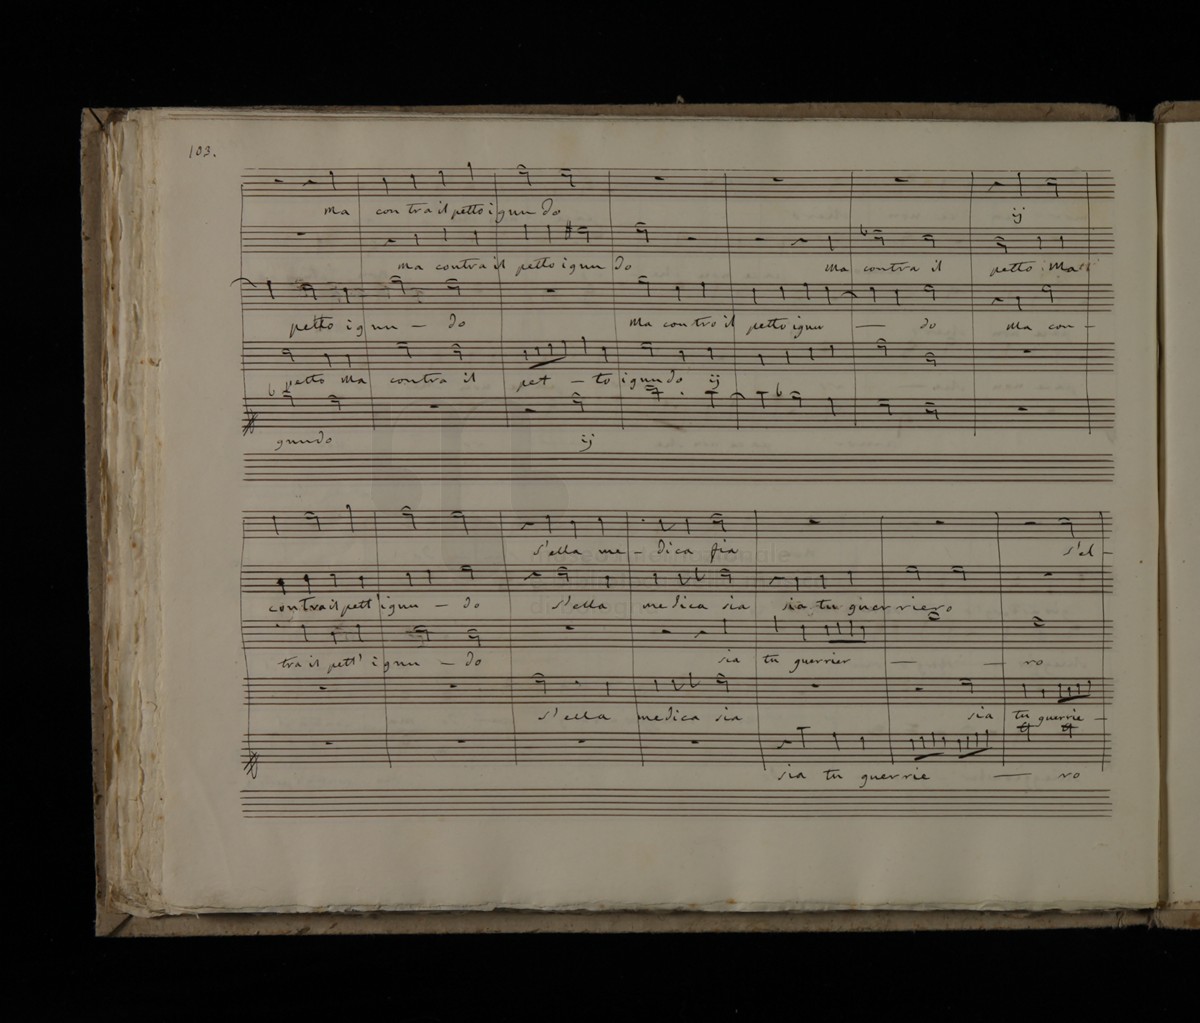 103.
ma con tra il petto i gnu do ij
ma contra il petto i gnu do ma contra il petto ma
petto i gnu — do ma con tro il petto ignu — do ma con –
petto ma contra il pet – to ignudo ij
gnudo ij
s'ella me – dica fia s'el –
contra il pett' ignu – do s'ella medica sia sia tu guerriero
tra il pett' ignu – do sia tu guerrier — — ro
s'ella medica sia sia tu guerrie –
sia tu guerrie — ro